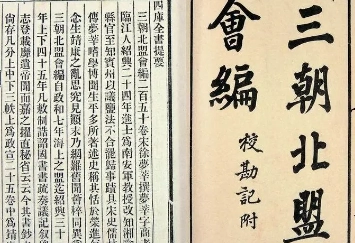 三朝北盟
會編
校勘記附
四庫全書提要
三朝北盟會編二百五十卷宋徐夢莘撰夢莘字商
臨江人紹興二十四年進士爲南安軍教授改知湘
縣官至知賓州以議鹽法不合罷歸事蹟具宋史儒
傳夢莘嗜學博聞生平多所著述史稱其恬於榮進
念生靖康之亂思究見顚末乃網羅舊聞薈稡同異
三朝北盟會編自政和七年海上之盟迄紹興三十
年上下四十五年凡敕制誥詔國書書疏奏議記敘
志登載靡遺帝聞而嘉之擢直秘省云云今其書鈔
尚存凡分上中下三帙上爲政宣二十五卷中爲靖